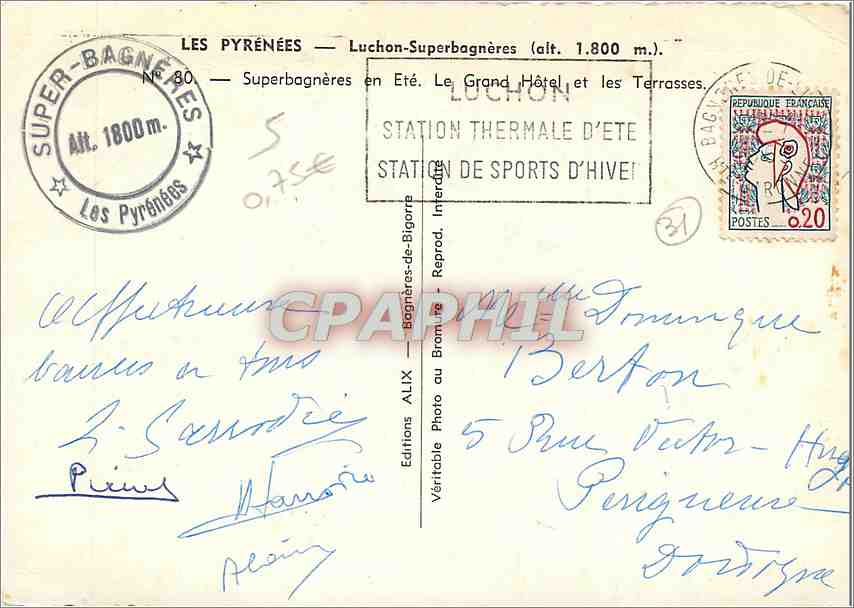 LES PYRÉNÉES — Luchon-Superbagnères (alt. 1.800 m.).
N° 80. — Superbagnères en Eté. Le Grand Hôtel et les Terrasses.
SUPER-BAGNÈRES
Alt. 1800 m.
Les Pyrénées
LUCHON
STATION THERMALE D'ETE
STATION DE SPORTS D'HIVER
BAGNERES-DE-
REPUBLIQUE FRANÇAISE
POSTES 0,20
5
0,75€
31
Affectueux
baisers à tous
Pierre
Alain
Editions ALIX — Bagnères-de-Bigorre
Véritable Photo au Bromure - Reprod. Interdite
CPAPHIL
Melle Dominique
Berton
5 Rue Victor-Hugo
Perigueux
Dordogne